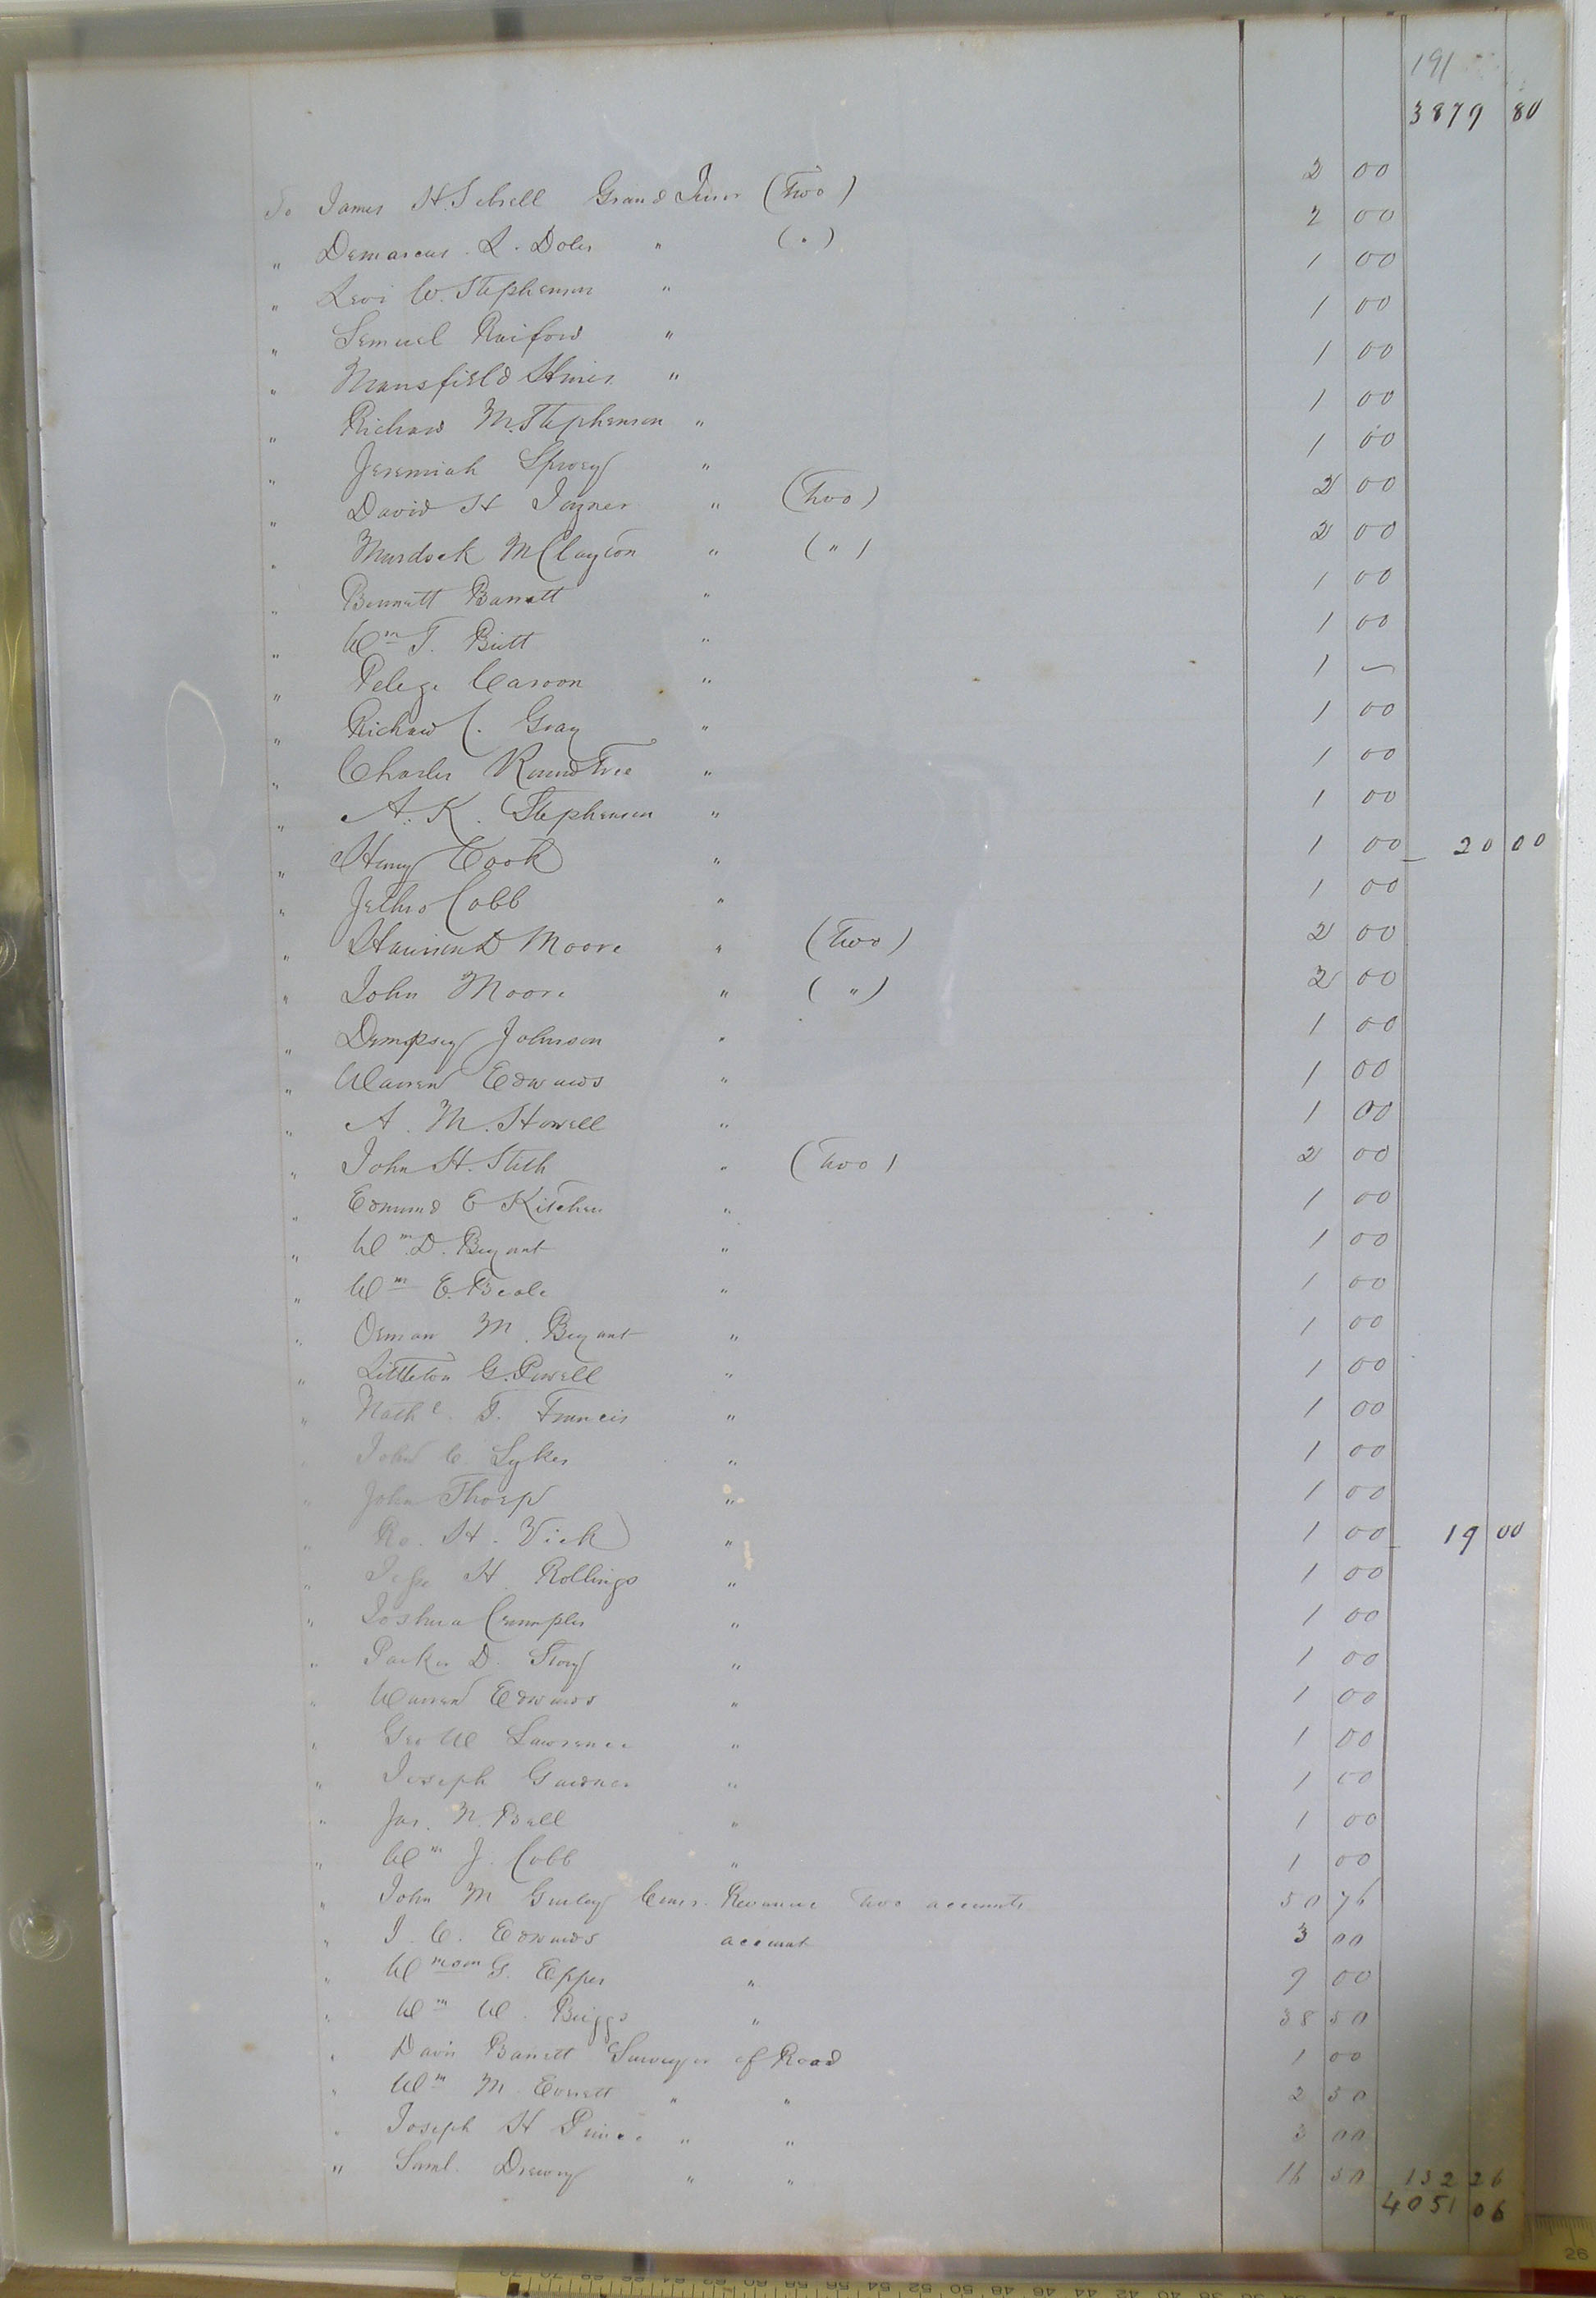 191
3879 80
To James H. Sebrell Grand Juror (Two) 2 00
" Demarcus L. Doles " (") 2 00
" Levi W. Stephenson " 1 00
" Lemuel Raiford " 1 00
" Mansfield Hines " 1 00
" Richard M. Stephenson " 1 00
" Jeremiah Spivey " 1 00
" David H Joyner " (Two) 2 00
" Murdock M Clayton " (") 2 00
" Bennett Barrett " 1 00
" Wm T. Britt " 1 00
" Pelege Carson " 1 —
" Richard C. Gray " 1 00
" Charles Roundtree " 1 00
" A. K. Stephenson " 1 00
" Henry Cook " 1 00 20 00
" Jethro Cobb " 1 00
" Harrison D Moore " (Two) 2 00
" John Moore " (") 2 00
" Dempsey Johnson " 1 00
" Warren Edwards " 1 00
" A. M. Howell " 1 00
" John H. Stith " (Two) 2 00
" Edmund E Kitchen " 1 00
" Wm D. Bryant " 1 00
" Wm E. Beale " 1 00
" Orman M. Bryant " 1 00
" Littleton G. Powell " 1 00
" Nathl. T. Francis " 1 00
" John C. Sykes " 1 00
" John Thorp " 1 00
" Ro. H. Vick " 1 00 19 00
" Jesse H. Rollings " 1 00
" Joshua Crumpler " 1 00
" Parker D. Story " 1 00
" Warren Edwards " 1 00
" Geo W Lawrence " 1 00
" Joseph Gardner " 1 00
" Jas. N. Bell " 1 00
" Wm J. Cobb " 1 00
" John M Gurley Comr. Revenue Two accounts 50 76
" J. C. Edwards account 3 00
" G. Eppes " 9 00
" Wm W. Briggs " 38 50
" Davis Barrett Surveyor of Road 1 00
" Wm M. Everett " " 2 50
" Joseph H Prince " " 3 00
" Saml. Drewry " " 16 50 132 26
4051 06